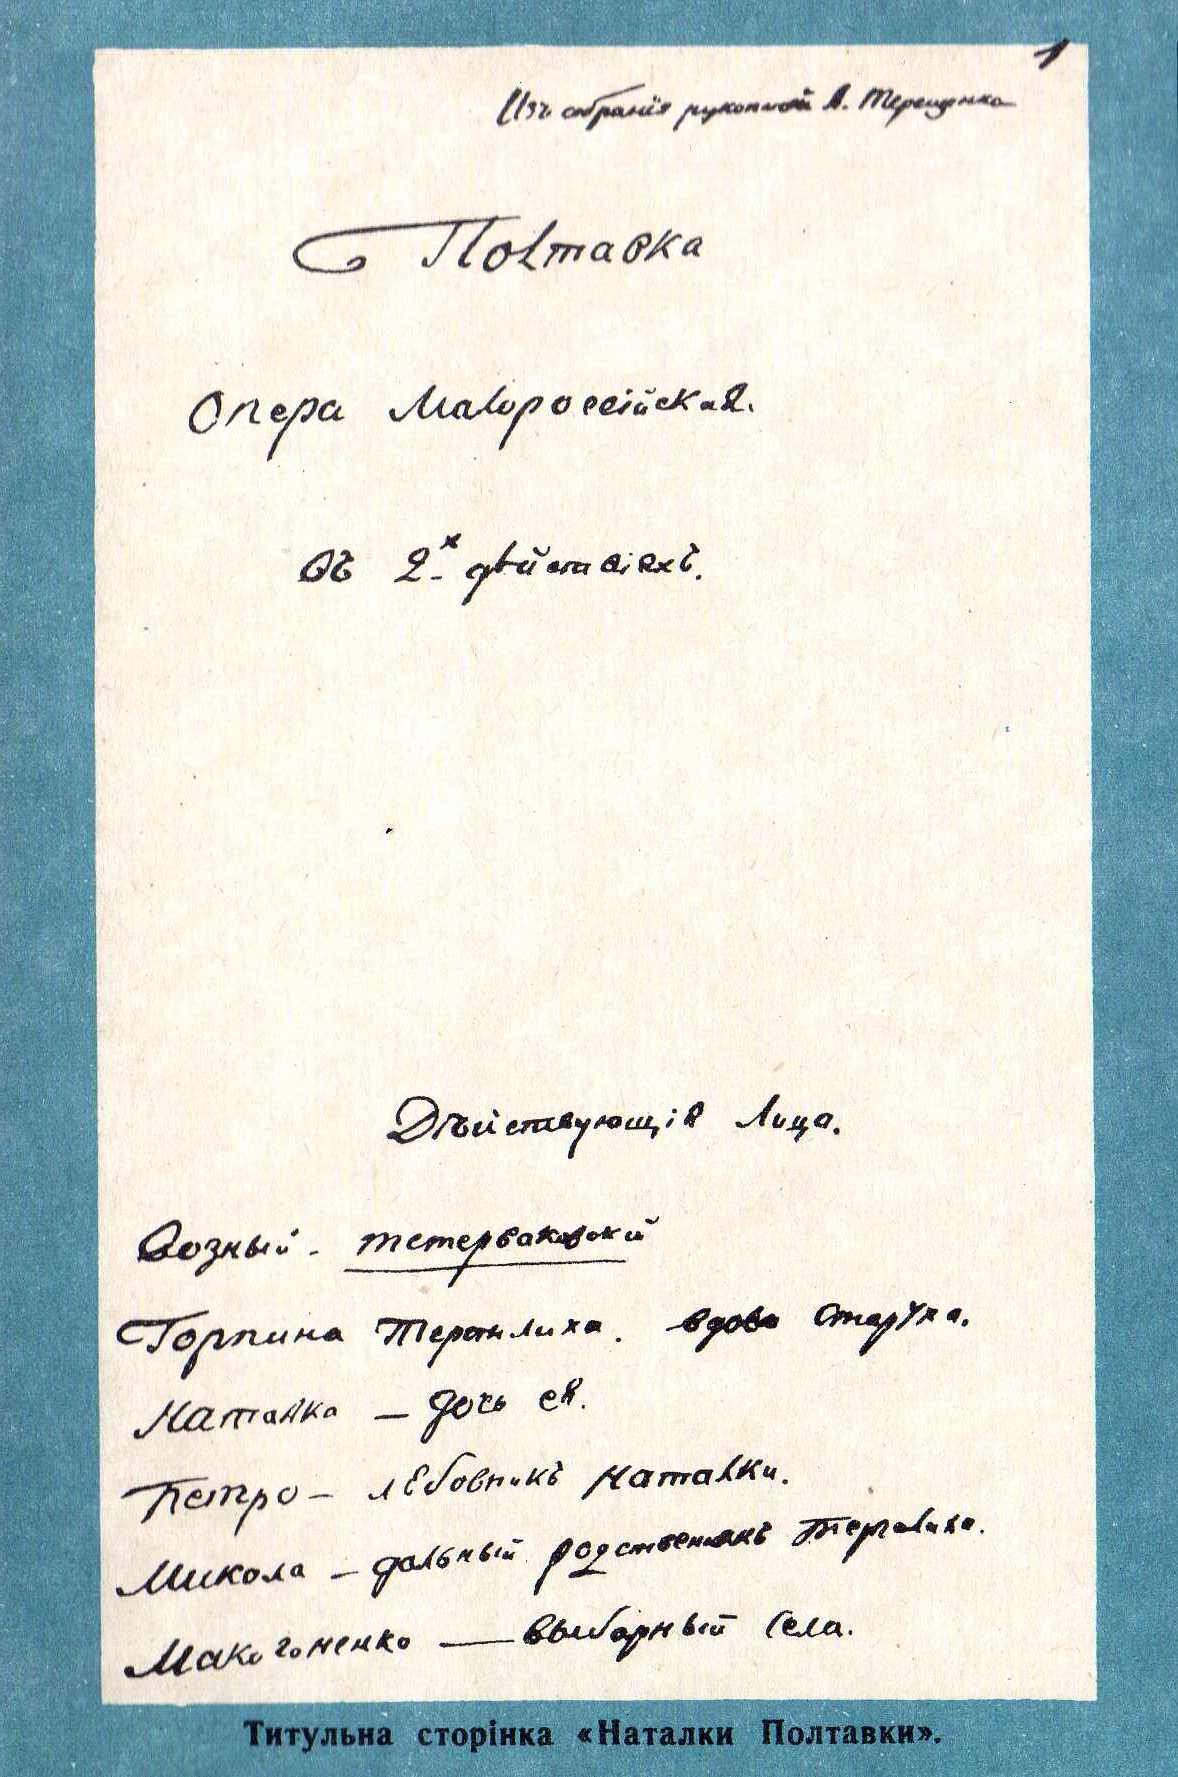 1
Изъ собранія рукописей А. Терещенка
Полтавка
Опера Малороссійская.
Въ 2х дѣйствіяхъ.
Дѣйствующія Лица.
Возный - тетерваковский
Горпина Терпилиха. вдова старуха.
Наталка — дочь ея.
Петро — любовникъ Наталки.
Микола — дальный родственникъ Терпилихи.
Макогоненко — выборный села.
Титульна сторінка «Наталки Полтавки».